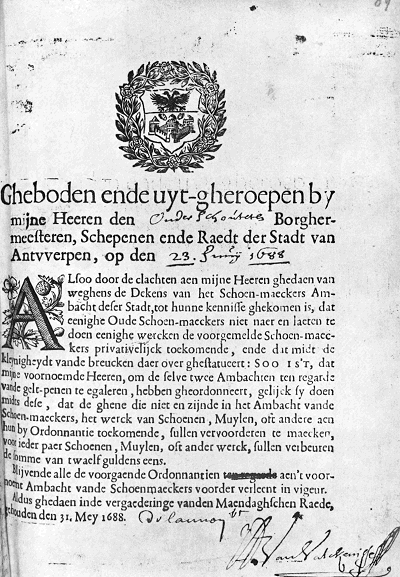 Gheboden ende uyt-gheroepen by
mijne Heeren den Onder Schouteth Borgher-
meesteren, Schepenen ende Raedt der Stadt van
Antvverpen, op den 23. Junij 1688
ALsoo door de clachten aen mijne Heeren ghedaen van
weghens de Dekens van het Schoen-maeckers Am-
bacht deser Stadt, tot hunne kennisse ghekomen is, dat
eenighe Oude Schoen-maeckers niet naer en laeten te
doen eenighe wercken de voorgemelde Schoen-maec-
kers privativelijck toekomende, ende dat midts de
kleynigheydt vande breucken daer over ghestatueert: SOO IS'T, dat
mijne voornoemde Heeren, om de selve twee Ambachten ten regarde
vande gelt-penen te egaleren, hebben gheordonneert, gelijck sy doen
midts dese, dat de ghene die niet en zijnde in het Ambacht vande
Schoen-maeckers, het werck van Schoenen, Muylen, oft andere aen
hun by Ordonnantie toekomende, sullen vervoorderen te maecken,
voor ieder paer Schoenen, Muylen, oft ander werck, sullen verbeuren
de somme van twaelf guldens eens.
Blijvende alle de voorgaende Ordonnantien ten regarde aen't voor-
noemt Ambacht vande Schoenmaeckers voorder verleent in vigeur.
Aldus ghedaen inde vergaederinge vanden Maendaghschen Raede,
gehouden den 31. Mey 1688.